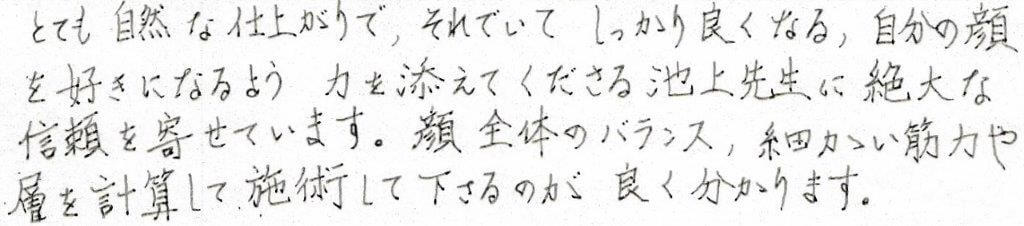 とても自然な仕上がりで, それでいて しっかり良くなる, 自分の顔
を好きになるよう 力を添えてくださる池上先生に絶大な
信頼を寄せています。顔全体のバランス, 細かい筋力や
層を計算して施術して下さるのが 良く分かります。